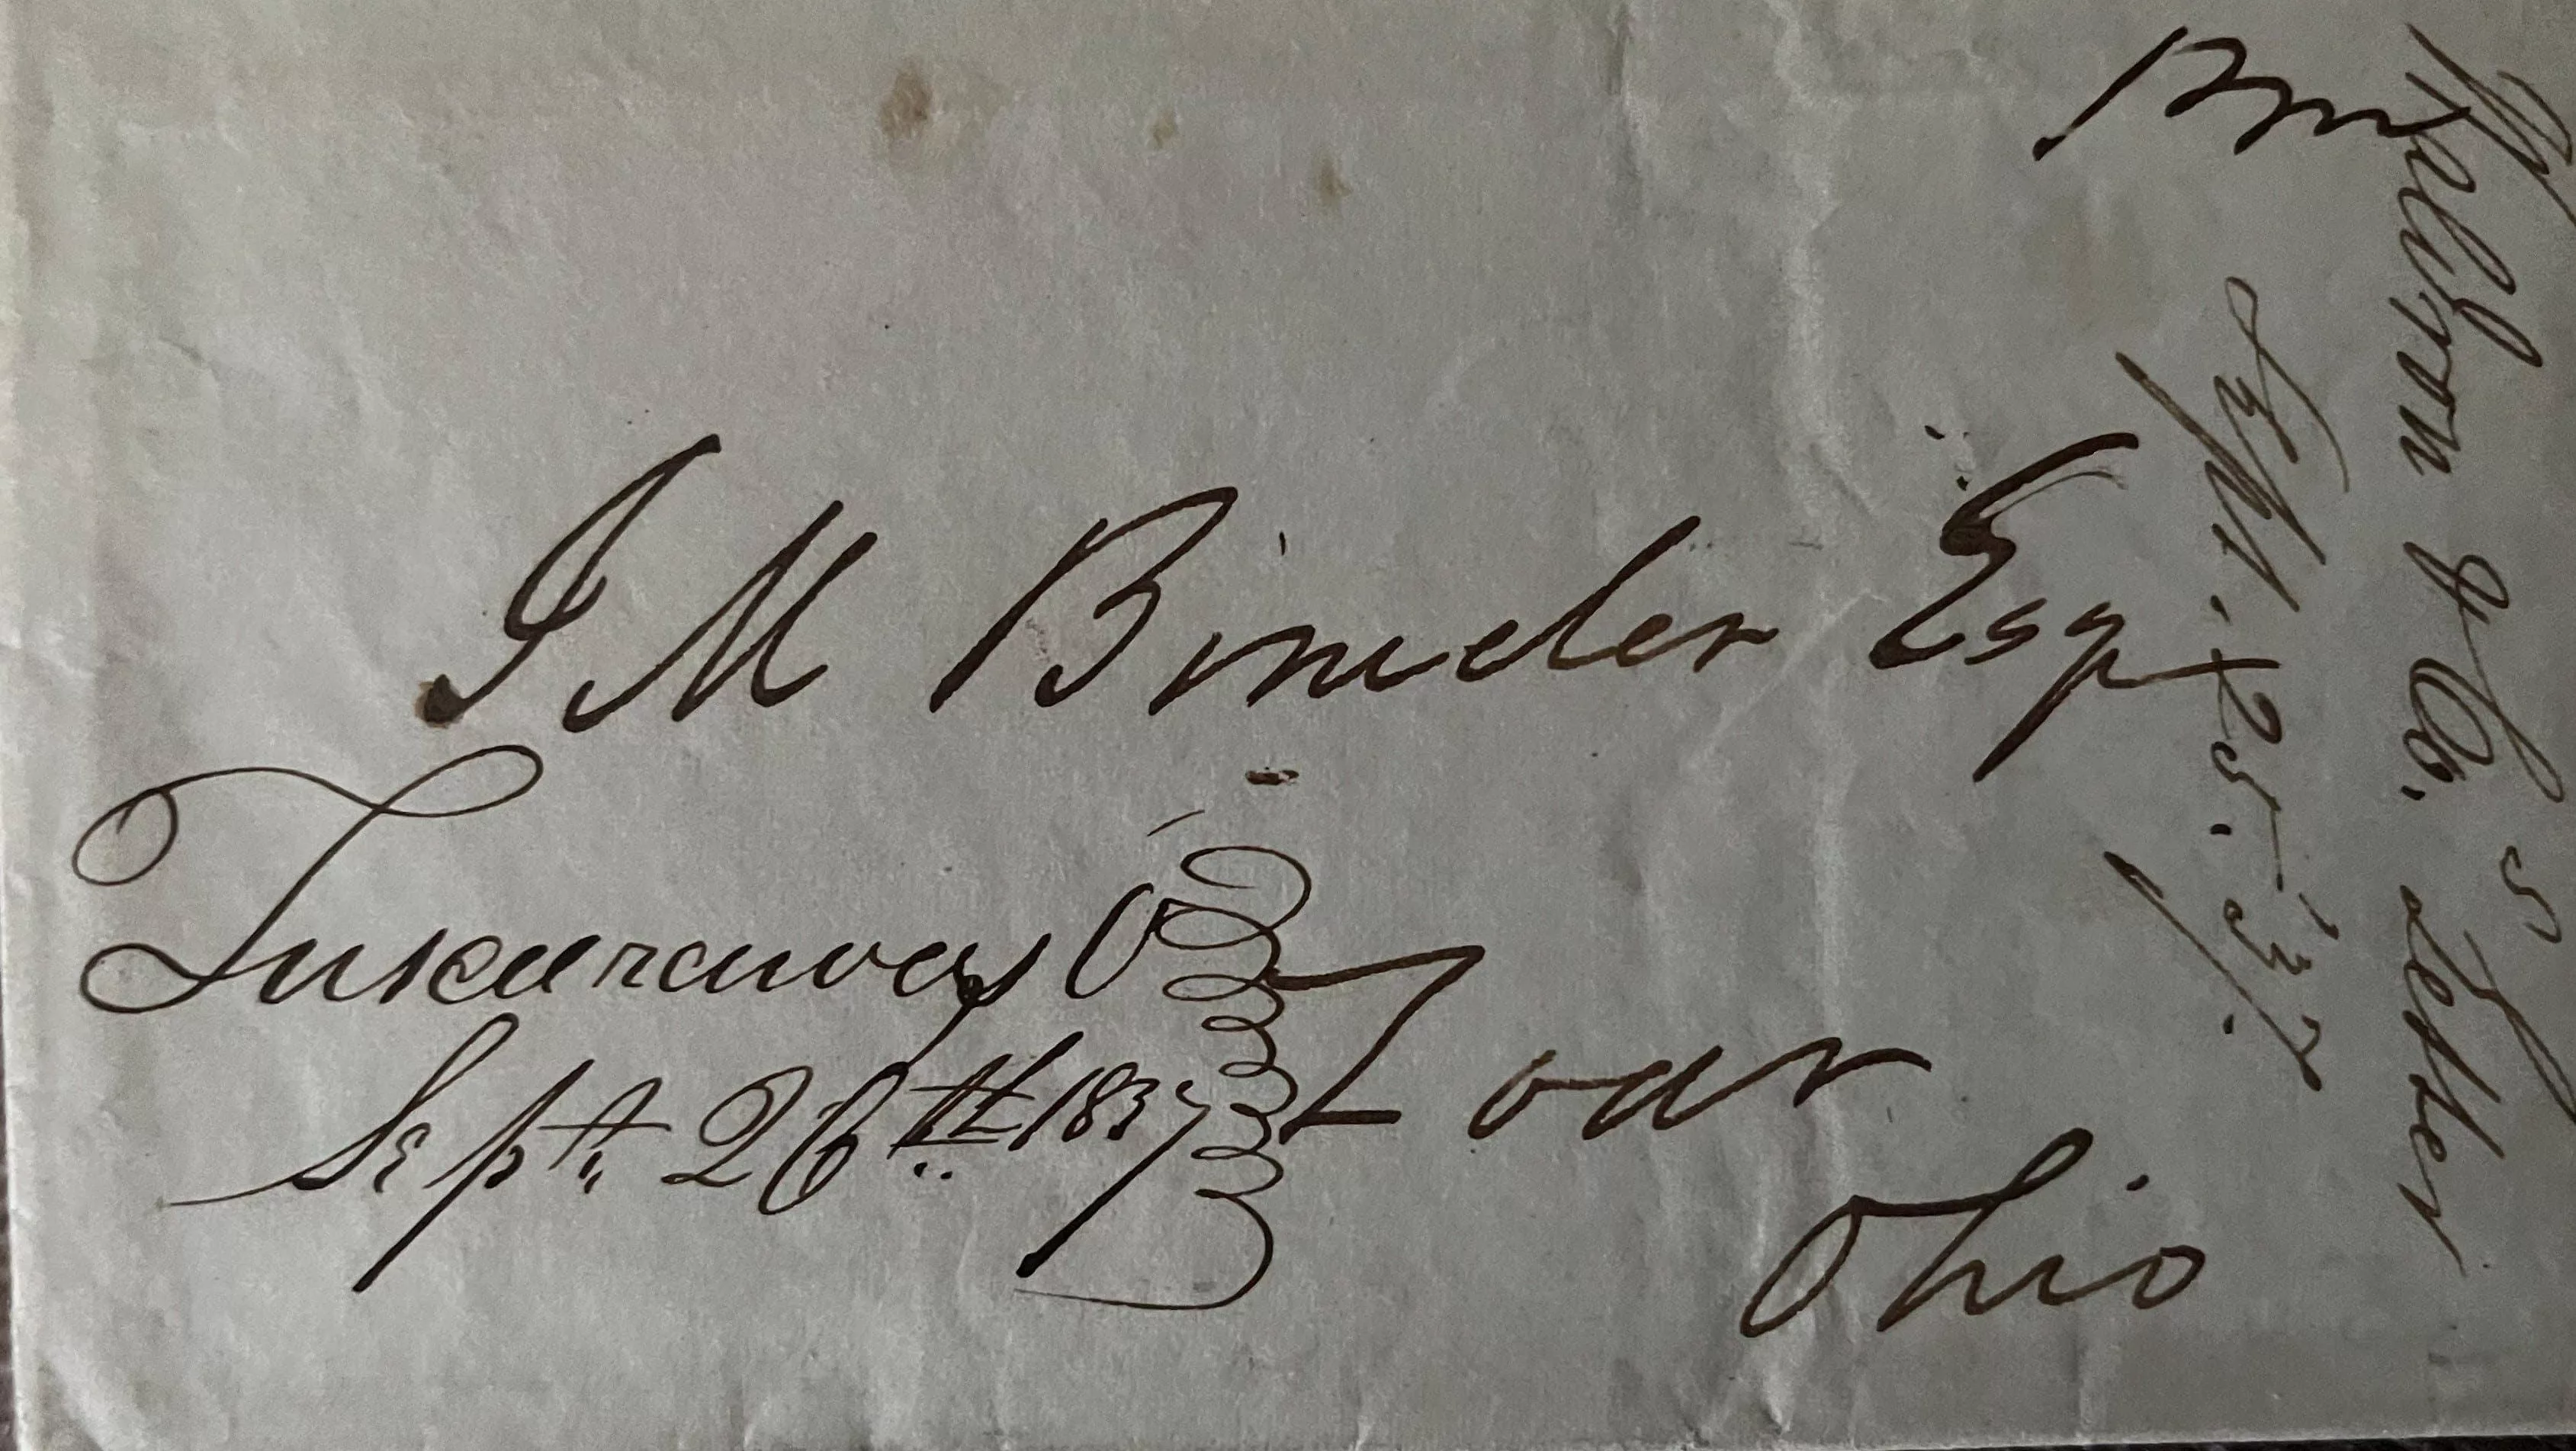 J M Bimeler Esq
Tuscarawas O
Sept. 26th 1837
Zoar
Ohio
& Co. Letter
Sept. 25. 37.